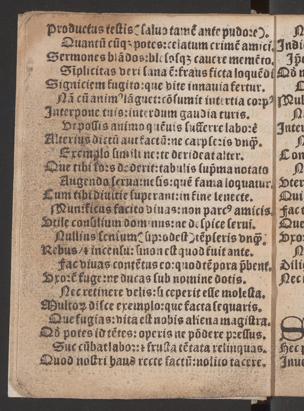 Productus testis (saluo tamē ante pudore).
Quantū cūqʒ potes: celatum crimē amici.
Sermones blādos: blesosqʒ cauere memēto.
Siplicitas veri fama ē: fraus ficta loquēdi
Signiciem fugito: que vite ignauia fertur.
Nā cū anim⁹ lāguet: cōsumit inertia corp⁹
Interpone tuis: interdum gaudia curis.
Vt possis animo quēuis sufferre laborē
Alterius dictū aut factū: ne carpseris vnqȝ.
Exemplo simili ne: te derideat alter.
Que tibi sors dederit: tabulis suprīma notato
Augendo serua: ne sis: quē fama loquatur.
Cum tibi diuitie superant: in fine senecte.
Munificus facito viuas: non parc⁹ amicis.
Vtile consilium dominus: ne despice serui.
Nullius sensum (si prodest) tēpseris vnqȝ.
Rebus / ⁊ incensu: si non est quod fuit ante.
Fac viuas contētus eo: quod tēpora p̄bent.
Vxorē fuge: ne ducas sub nomine dotis.
Nec retinere velis: si ceperit esse molesta.
Multorʒ disce exemplo: que facta sequaris.
Que fugias: vita est nobis aliena magistra.
Qđ potes id tētes: operis ne pōdere pressus.
Succūbat labor: ⁊ frustra tētata relinquas.
Quod nosti haud recte factū: nolito tacere.